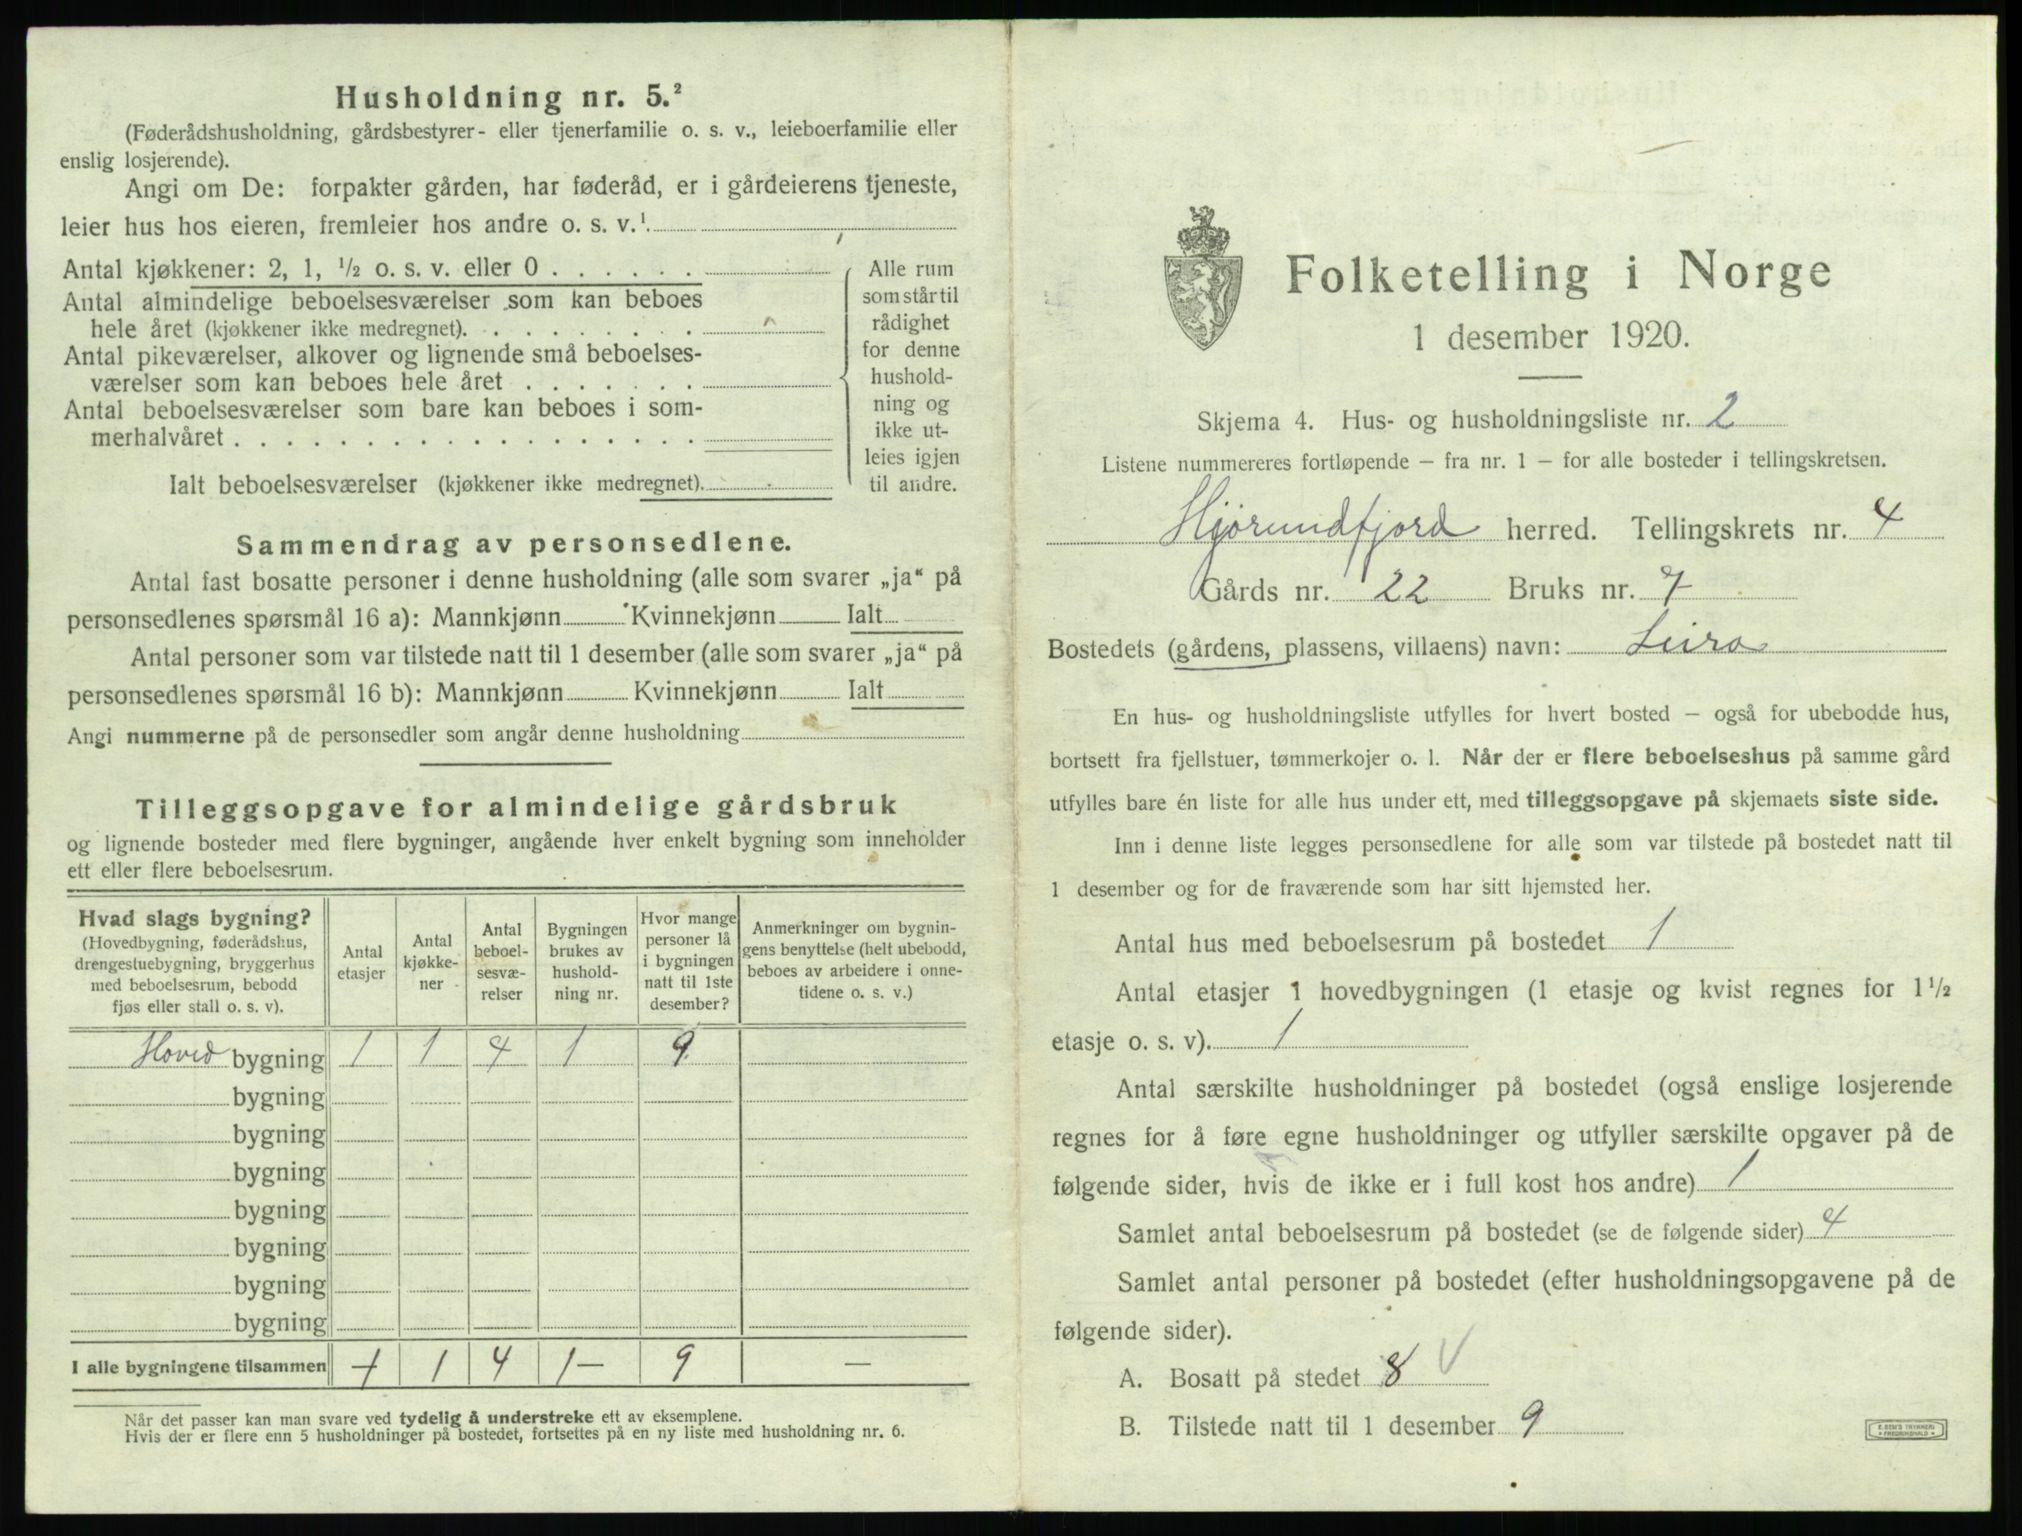 Husholdning nr. 5.²
(Føderådshusholdning, gårdsbestyrer- eller tjenerfamilie o. s. v., leieboerfamilie eller
enslig losjerende).
Angi om De: forpakter gården, har føderåd, er i gårdeierens tjeneste,
leier hus hos eieren, fremleier hos andre o. s. v.¹
Antal kjøkkener: 2, 1, ½ o. s. v. eller 0
Antal almindelige beboelsesværelser som kan beboes
hele året (kjøkkener ikke medregnet).
Antal pikeværelser, alkover og lignende små beboelses-
værelser som kan beboes hele året
Antal beboelsesværelser som bare kan beboes i som-
merhalvåret
Ialt beboelsesværelser (kjøkkener ikke medregnet).
Alle rum
som står til
rådighet
for denne
hushold-
ning og
ikke ut-
leies igjen
til andre.
Sammendrag av personsedlene.
Antal fast bosatte personer i denne husholdning (alle som svarer „ja“ på
personsedlenes spørsmål 16 a): Mannkjønn Kvinnekjønn Ialt
Antal personer som var tilstede natt til 1 desember (alle som svarer „ja“ på
personsedlenes spørsmål 16 b): Mannkjønn Kvinnekjønn Ialt
Angi nummerne på de personsedler som angår denne husholdning
Tilleggsopgave for almindelige gårdsbruk
og lignende bosteder med flere bygninger, angående hver enkelt bygning som inneholder
ett eller flere beboelsesrum.
Hvad slags bygning?
(Hovedbygning, føderådshus,
drengestuebygning, bryggerhus
med beboelsesrum, bebodd
fjøs eller stall o. s. v).
Antal
etasjer
Antal
kjøkke-
ner
Antal
beboel-
sesvæ-
relser
Bygningen
brukes av
hushold-
ning nr.
Hvor mange
personer lå
i bygningen
natt til 1ste
desember?
Anmerkninger om bygnin-
gens benyttelse (helt ubebodd,
beboes av arbeidere i onne-
tidene o. s. v.)
Hoved bygning 1 1 4 1 9
bygning
bygning
bygning
bygning
bygning
bygning
bygning
I alle bygningene tilsammen 1 1 4 1 — 9 —
Når det passer kan man svare ved tydelig å understreke ett av eksemplene.
Hvis der er flere enn 5 husholdninger på bostedet, fortsettes på en ny liste med husholdning nr. 6.
Folketelling i Norge
1 desember 1920.
Skjema 4. Hus- og husholdningsliste nr. 2
Listene nummereres fortløpende – fra nr. 1 – for alle bosteder i tellingskretsen.
Hjørundfjord herred. Tellingskrets nr. 4
Gårds nr. 22 Bruks nr. 7
Bostedets (gårdens, plassens, villaens) navn: Leira
En hus- og husholdningsliste utfylles for hvert bosted – også for ubebodde hus,
bortsett fra fjellstuer, tømmerkojer o. l. Når der er flere beboelseshus på samme gård
utfylles bare én liste for alle hus under ett, med tilleggsopgave på skjemaets siste side.
Inn i denne liste legges personsedlene for alle som var tilstede på bostedet natt til
1 desember og for de fraværende som har sitt hjemsted her.
Antal hus med beboelsesrum på bostedet 1
Antal etasjer i hovedbygningen (1 etasje og kvist regnes for 1½
etasje o. s. v). 1
Antal særskilte husholdninger på bostedet (også enslige losjerende
regnes for å føre egne husholdninger og utfyller særskilte opgaver på de
følgende sider, hvis de ikke er i full kost hos andre) 1
Samlet antal beboelsesrum på bostedet (se de følgende sider) 4
Samlet antal personer på bostedet (efter husholdningsopgavene på de
følgende sider).
A. Bosatt på stedet 8 V
B. Tilstede natt til 1 desember 9